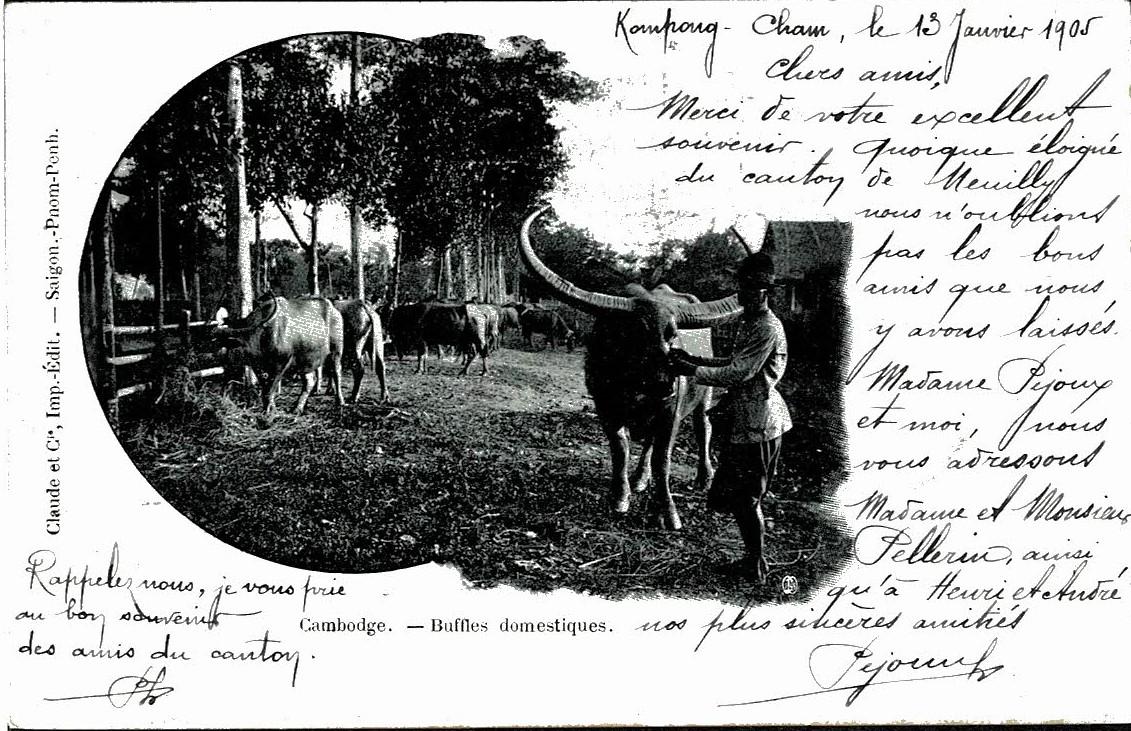 Kompong-Cham, le 13 Janvier 1905
Chers amis,
Merci de votre excellent
souvenir. Quoique éloigné
du canton de Neuilly
nous n'oublions
pas les bons
amis que nous
y avons laissés.
Madame Péjoux
et moi, nous
vous adressons
Madame et Monsieur
Pellerin, ainsi
qu'à Henri et André
nos plus sincères amitiés
Péjoux
Rappelez nous, je vous prie
au bon souvenir
des amis du canton.
Claude et Cie, Imp.-Édit. — Saigon.-Pnom-Penh.
Cambodge. — Buffles domestiques.